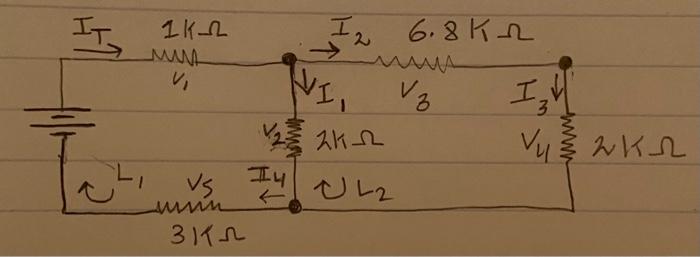 I_T 1KΩ I_2 6.8KΩ
V_1 I_1 V_3 I_3
V_2 2KΩ V_4 2KΩ
L_1 V_5 I_4 L_2
31KΩ